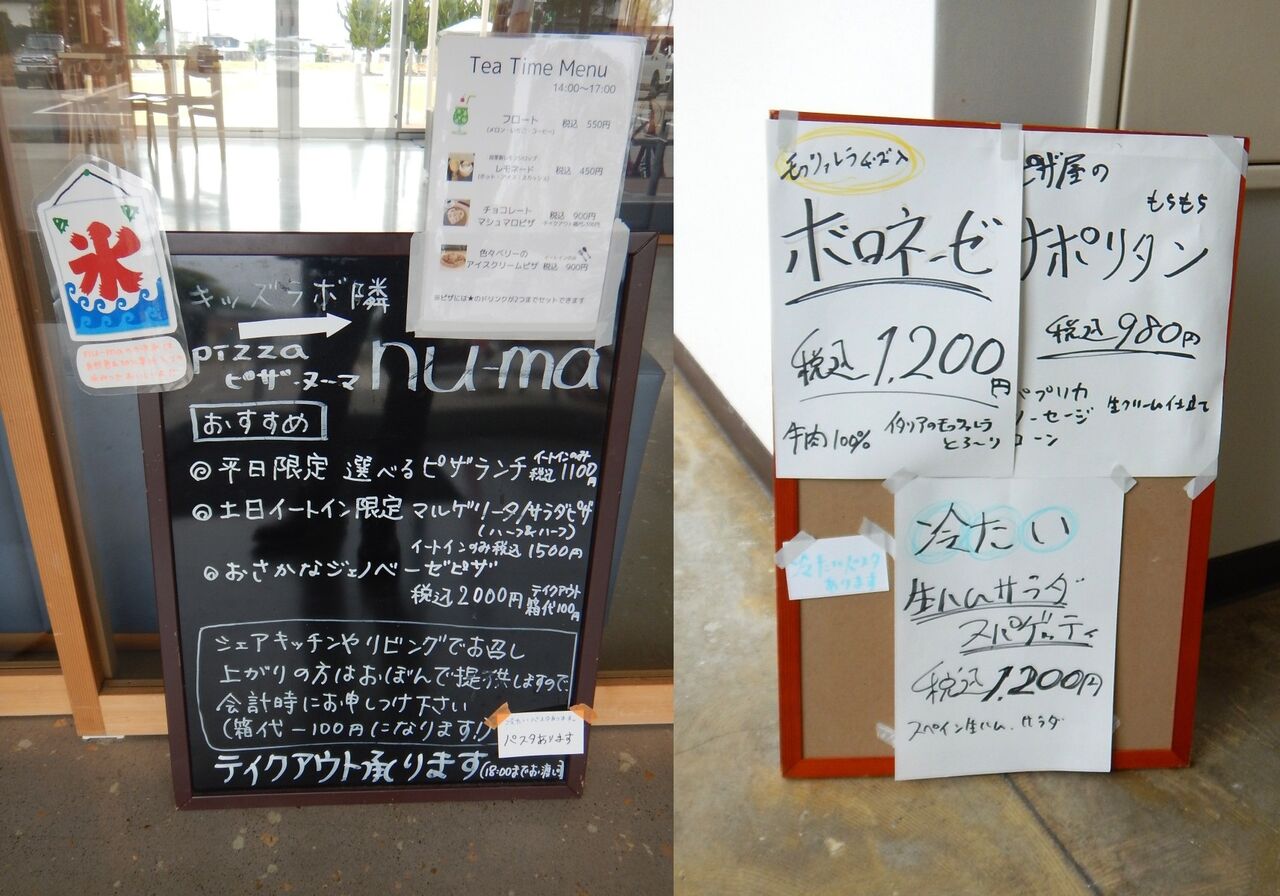 Tea Time Menu
14:00～17:00
フロート 税込 550円
(メロン・いちご・コーヒー)
レモネード 税込 450円
チョコレート
マシュマロピザ 税込 900円
色々ベリーの
アイスクリームピザ 税込 900円
※ピザには★のドリンクが2つまでセットできます
氷
キッズラボ隣
pizza
ピザ・ヌーマ
nu-ma
おすすめ
◎平日限定 選べるピザランチ イートインのみ 税込1100円
◎土日イートイン限定 マルゲリータ/サラダピザ
(ハーフ&ハーフ)
イートインのみ税込1500円
◎おさかなジェノベーゼピザ
税込2000円 テイクアウト箱代100円
シェアキッチンやリビングでお召し
上がりの方はおぼんで提供しますので
会計時にお申しつけ下さい
(箱代-100円になります!)
パスタあります
テイクアウト承ります(18:00までお渡し)
モッツァレラチーズ入
ボロネーゼ
税込1,200円
牛肉100% イタリアのモッツァレラ
とろ～り
ピザ屋の
もちもち
ナポリタン
税込980円
パプリカ
ソーセージ
コーン
生クリーム仕立て
冷たいパスタ
あります
冷たい
生ハムサラダ
スパゲッティ
税込1,200円
スペイン生ハム、サラダ